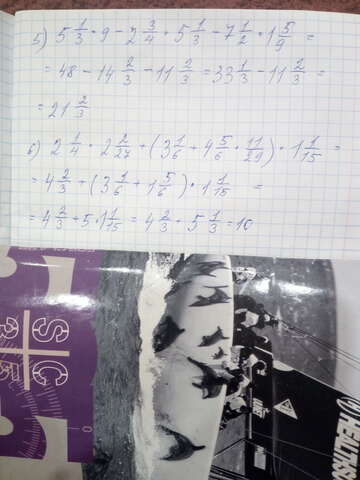 5) 5 1/3 · 9 - 2 3/4 · 5 1/3 - 7 1/2 · 1 5/9 =
= 48 - 14 2/3 - 11 2/3 = 33 1/3 - 11 2/3 =
= 21 2/3
6) 2 1/4 · 2 2/27 + (3 1/6 + 4 5/6 · 11/29) · 1 1/15 =
= 4 2/3 + (3 1/6 + 1 5/6) · 1 1/15 =
= 4 2/3 + 5 · 1 1/15 = 4 2/3 + 5 1/3 = 10
SC